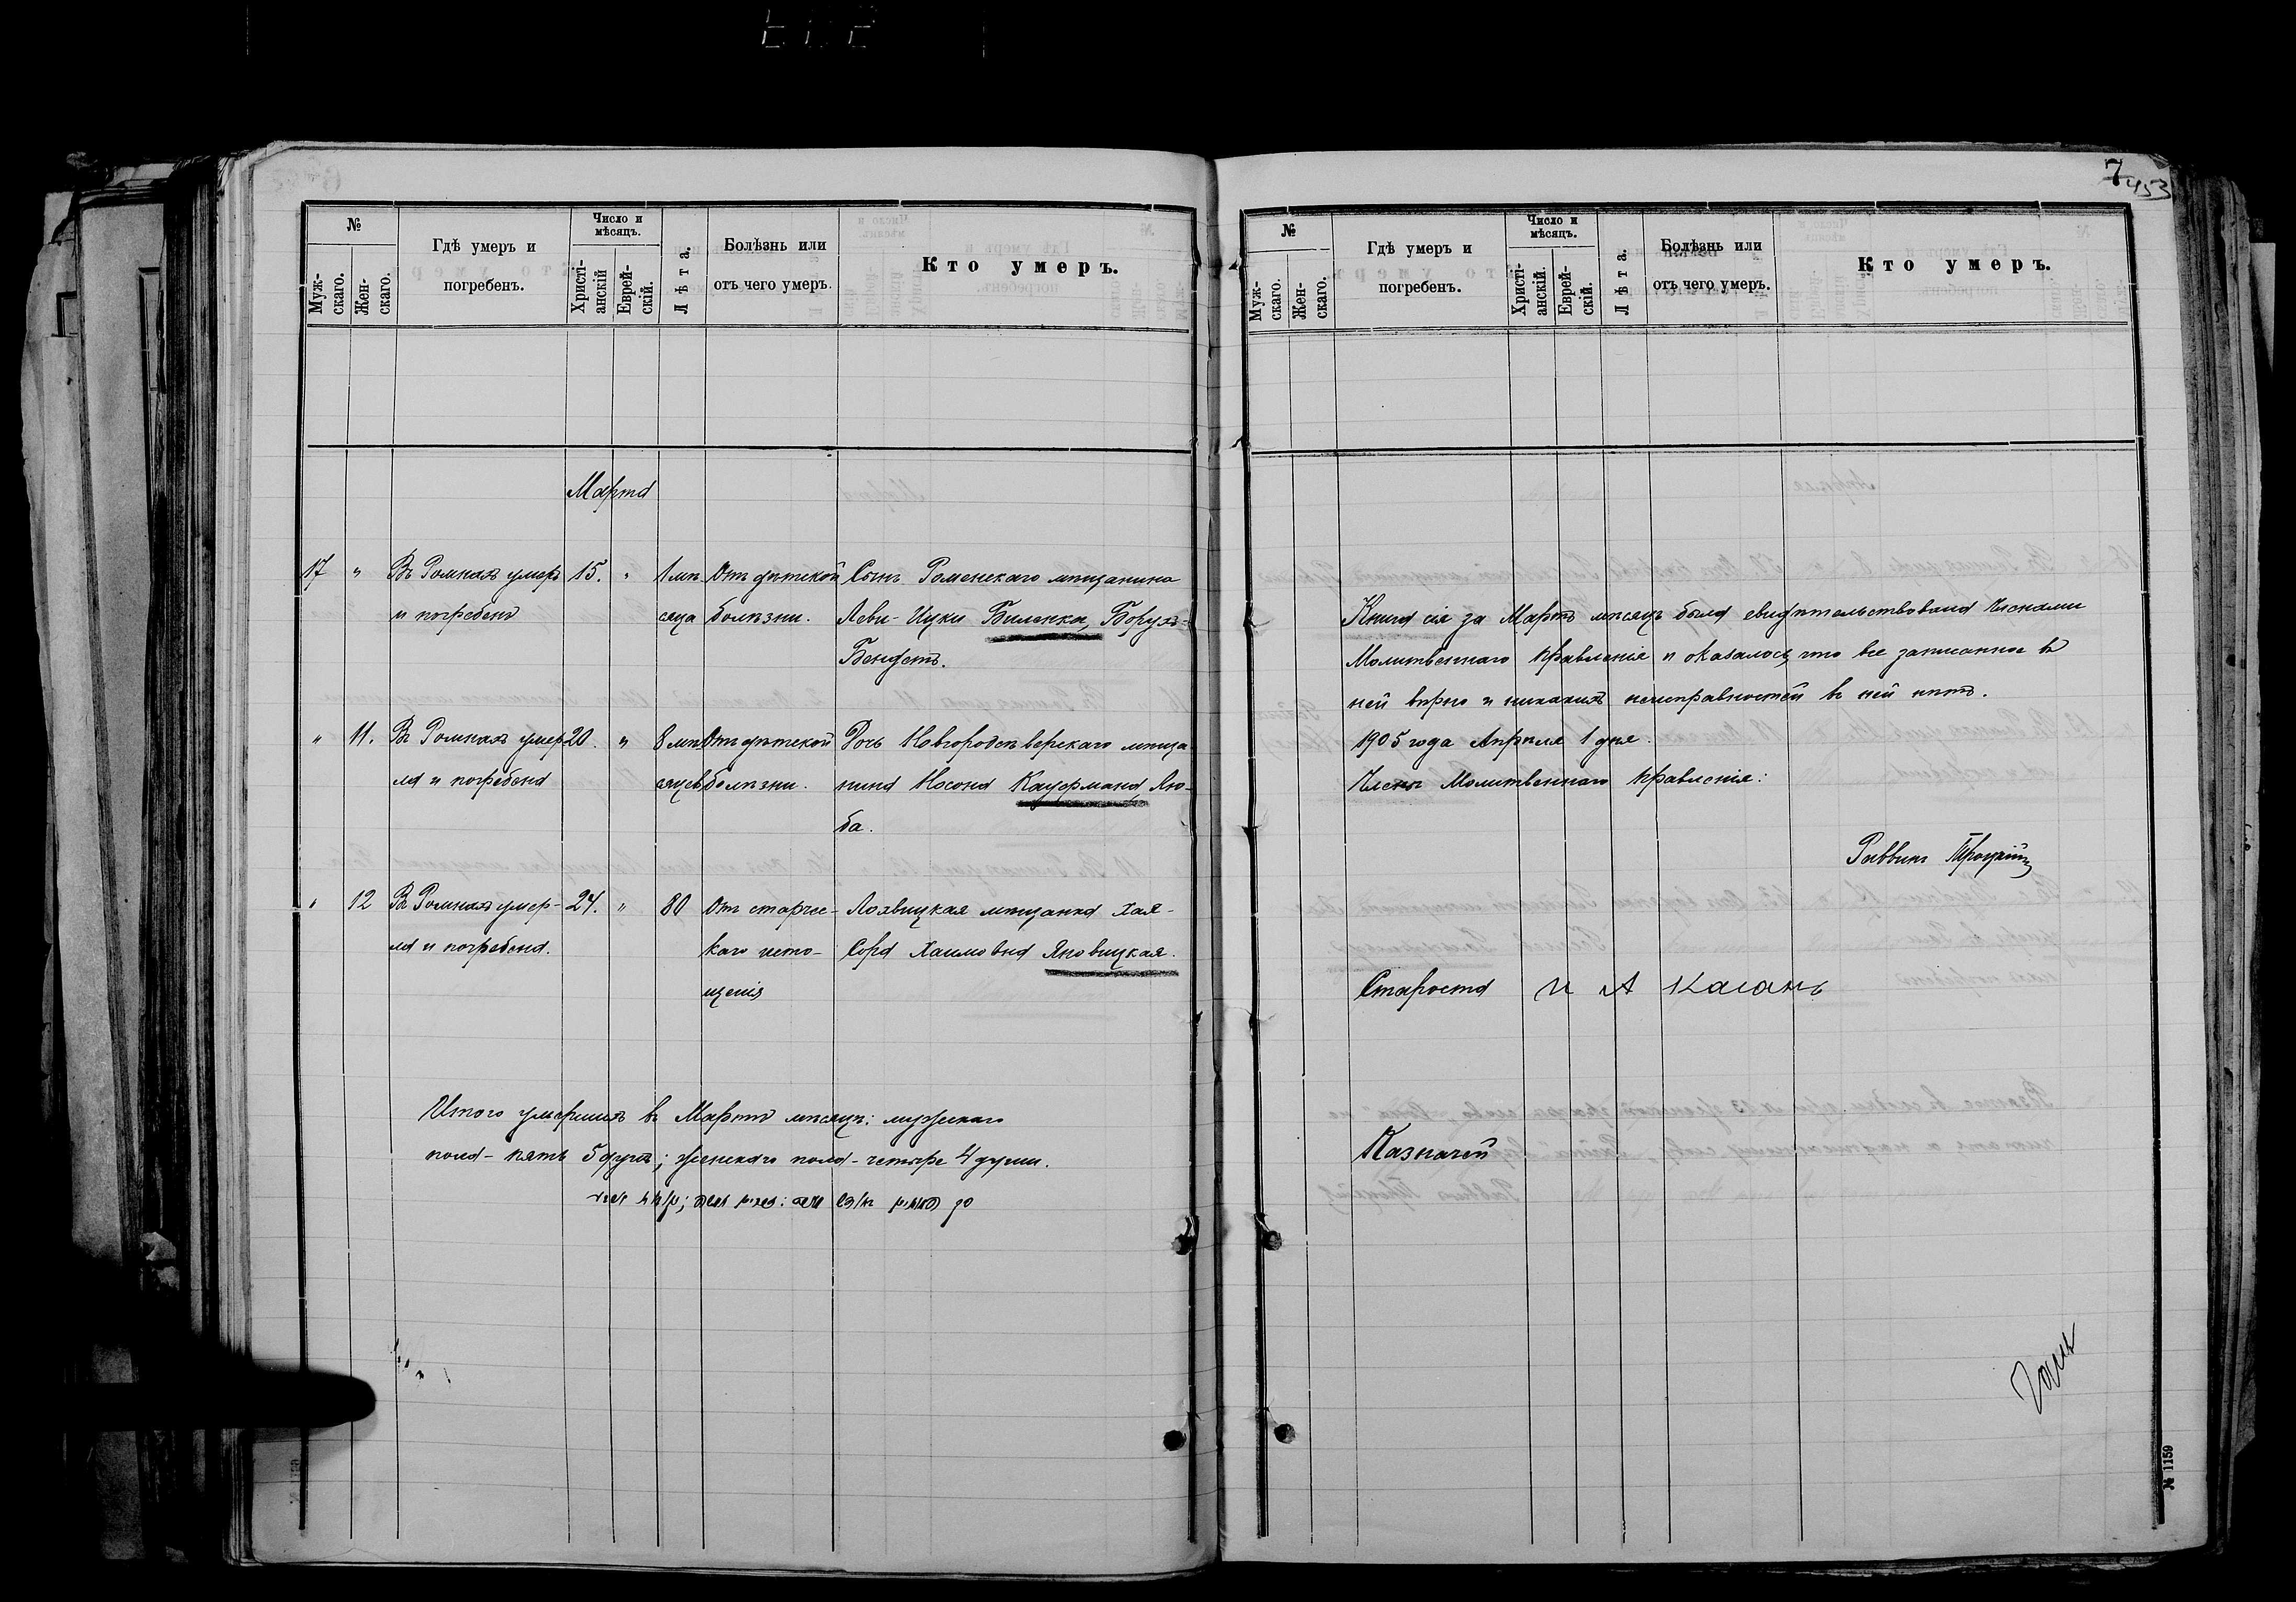 №
Муж-
скаго.
Жен-
скаго.
Гдѣ умеръ и
погребенъ.
Число и
мѣсяцъ.
Христі-
анскій
Еврей-
скій.
Лѣта.
Болѣзнь или
отъ чего умеръ.
Кто умеръ.
Марта
17 " Въ Ромнахъ умеръ 15. " 1 мѣ- Отъ дѣтской Сынъ Роменскаго мѣщанина
и погребенъ сяца болѣзни. Леви-Ицки Биленки, Борухъ-
Бендетъ.
" 11. Въ Ромнахъ умер- 20. " 8 мѣ- Отъ дѣтской Дочь Новгородсѣверскаго мѣща-
ла и погребена сяцев болѣзни. нина Носона Кауфмана, Лю-
ба.
" 12 Въ Ромнахъ умер- 24. " 80 Отъ старчес- Лохвицкая мѣщанка Хая-
ла и погребена. каго исто- Сора Хаимовна Яновицкая.
щенія
Итого умершихъ въ Мартѣ мѣсяцѣ: мужскаго
пола - пять 5 душъ; женскаго пола - четыре 4 души.
7 453
№
Муж-
скаго.
Жен-
скаго.
Гдѣ умеръ и
погребенъ.
Число и
мѣсяцъ.
Христі-
анскій.
Еврей-
скій.
Лѣта.
Болѣзнь или
отъ чего умеръ.
Кто умеръ.
Книга сія за Мартъ мѣсяцъ была свидѣтельствована членами
Молитвеннаго Правленія и оказалось, что все записанное въ
ней вѣрно и никакихъ неисправностей въ ней нѣтъ.
1905 года Апрѣля 1 дня.
Члены Молитвеннаго Правленія:
Раввинъ
Староста И А Каганъ
Казначей
№ 1159